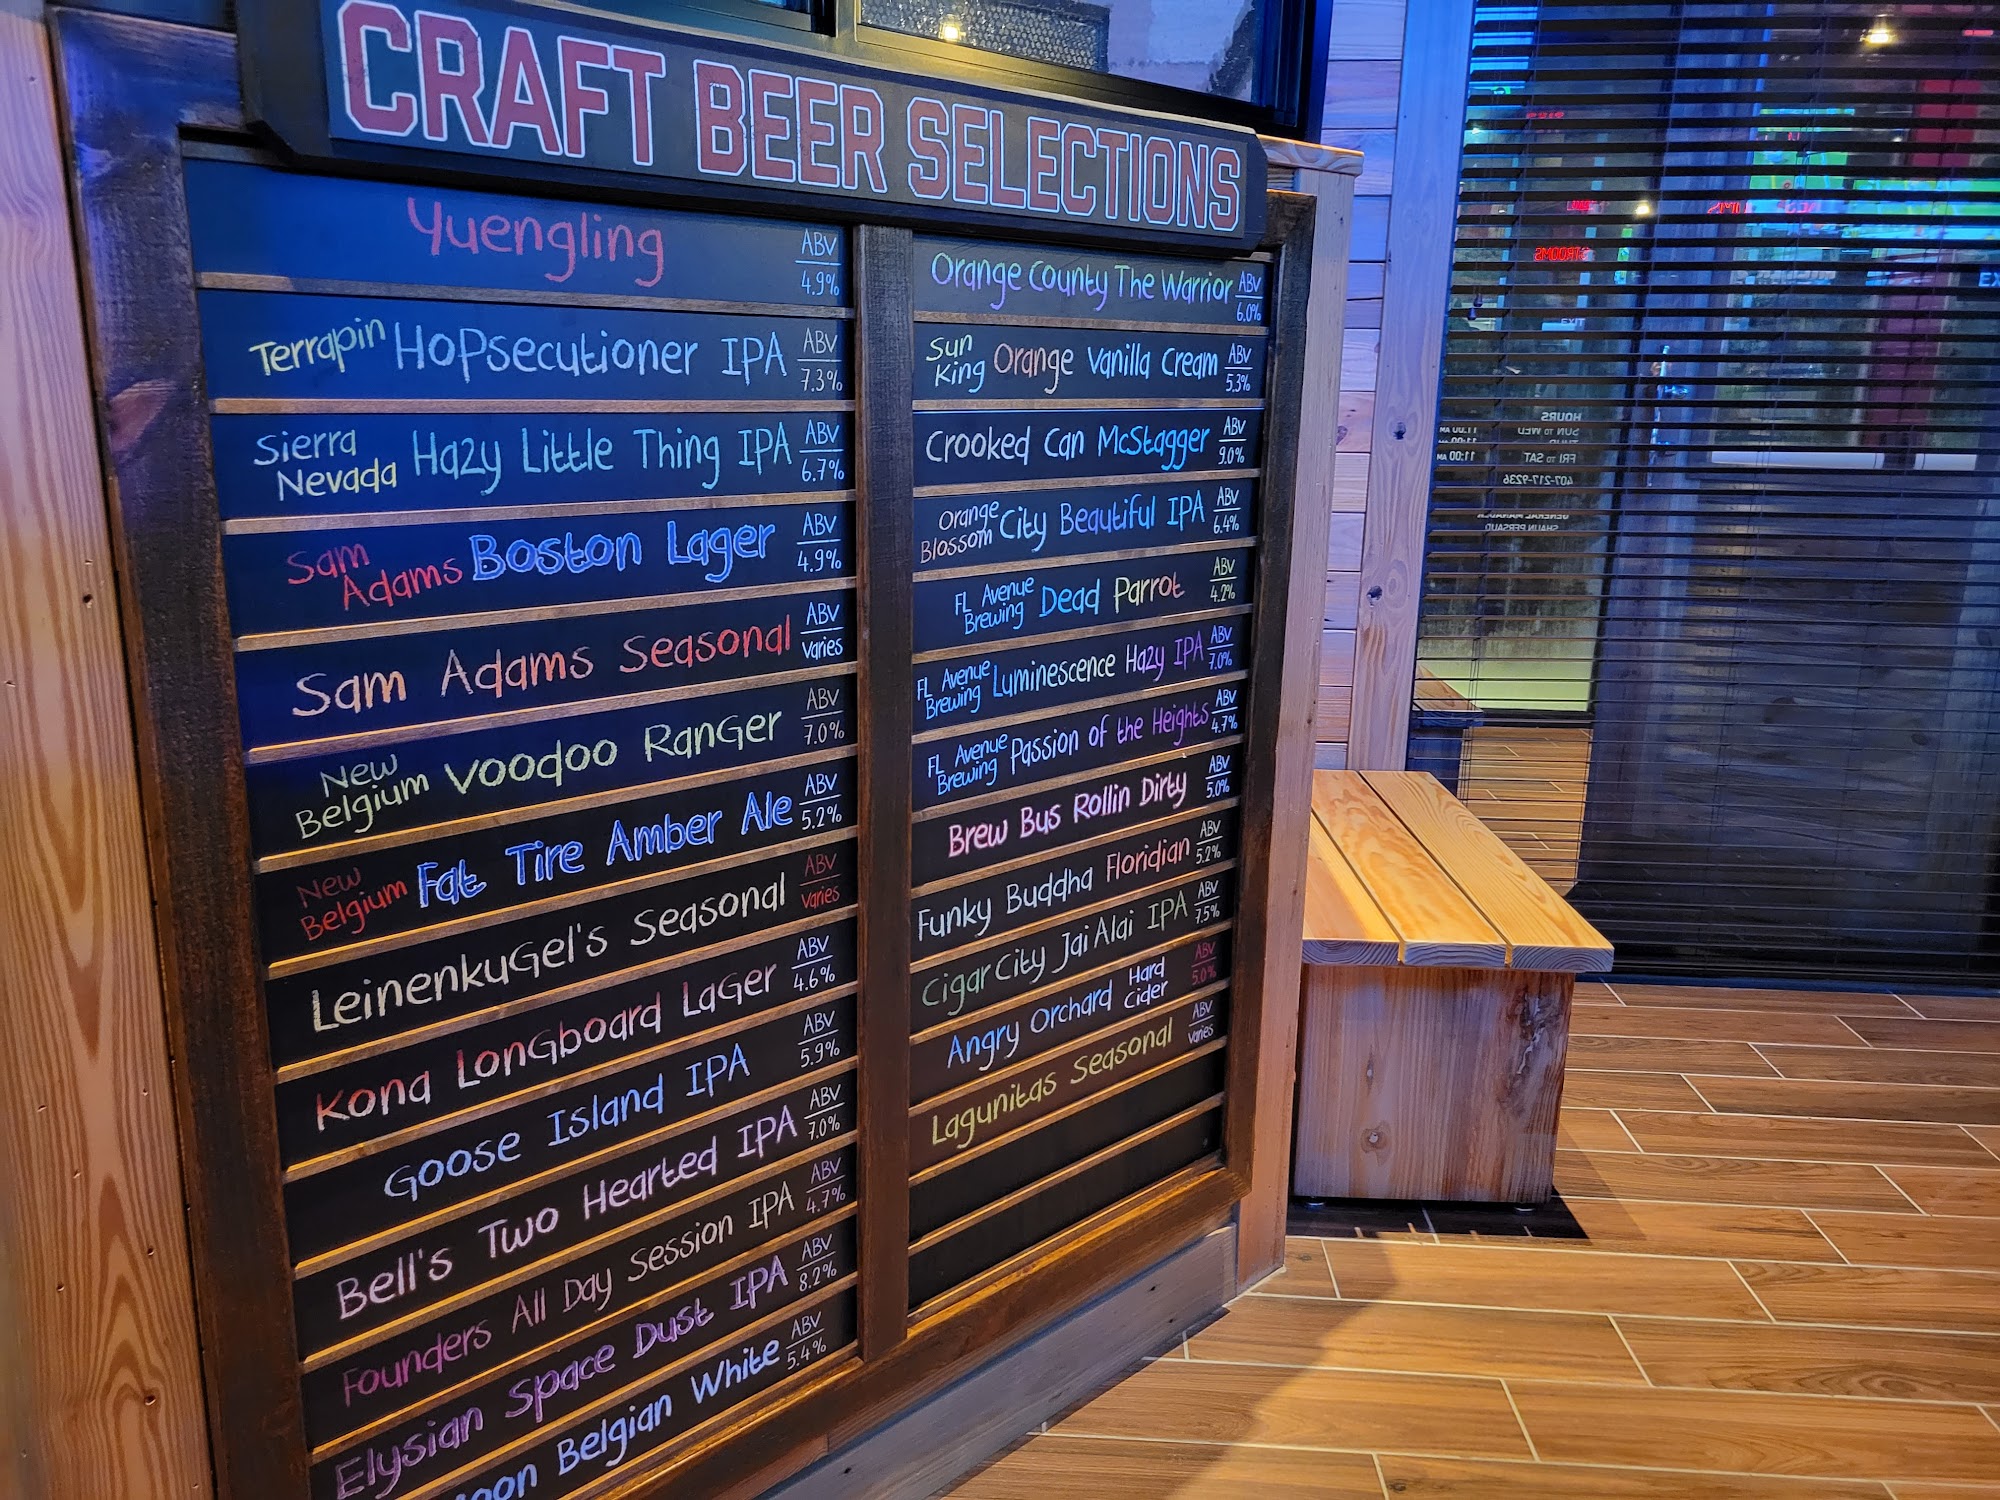 CRAFT BEER SELECTIONS
Yuengling ABV 4.9%
Terrapin Hopsecutioner IPA ABV 7.3%
Sierra Nevada Hazy Little Thing IPA ABV 6.7%
Sam Adams Boston Lager ABV 4.9%
Sam Adams Seasonal ABV varies
New Belgium Voodoo RanGer ABV 7.0%
New Belgium Fat Tire Amber Ale ABV 5.2%
LeinenkuGel's Seasonal ABV varies
Kona LonGboard LaGer ABV 4.6%
Goose Island IPA ABV 5.9%
Bell's Two Hearted IPA ABV 7.0%
Founders All Day Session IPA ABV 4.7%
Elysian Space Dust IPA ABV 8.2%
oon Belgian White ABV 5.4%
Orange County The Warrior ABV 6.0%
Sun King Orange Vanilla Cream ABV 5.3%
Crooked Can McStagger ABV 9.0%
Orange Blossom City Beautiful IPA ABV 6.4%
FL Avenue Brewing Dead Parrot ABV 4.2%
FL Avenue Brewing Luminescence Hazy IPA ABV 7.0%
FL Avenue Brewing Passion of the Heights ABV 4.7%
Brew Bus Rollin Dirty ABV 5.0%
Funky Buddha Floridian ABV 5.2%
Cigar City Jai Alai IPA ABV 7.5%
Angry Orchard Hard Cider ABV 5.0%
Lagunitas Seasonal ABV varies
HOURS
SUN TO WED 11:00 AM
11:00 AM
FRI TO SAT 11:00 AM
407-217-9236
GENERAL MANAGER
SHAUN PERSAUD